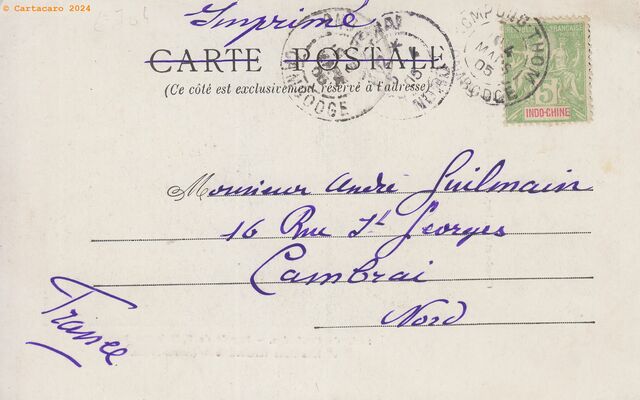 © Cartacaro 2024
Imprimé
CARTE POSTALE
(Ce côté est exclusivement réservé à l'adresse)
KOMPONG-THOM
MAI
05
CAMBODGE
CAMBODGE
INDO-CHINE
Monsieur André Guilmain
16 Rue St Georges
Cambrai
Nord
France